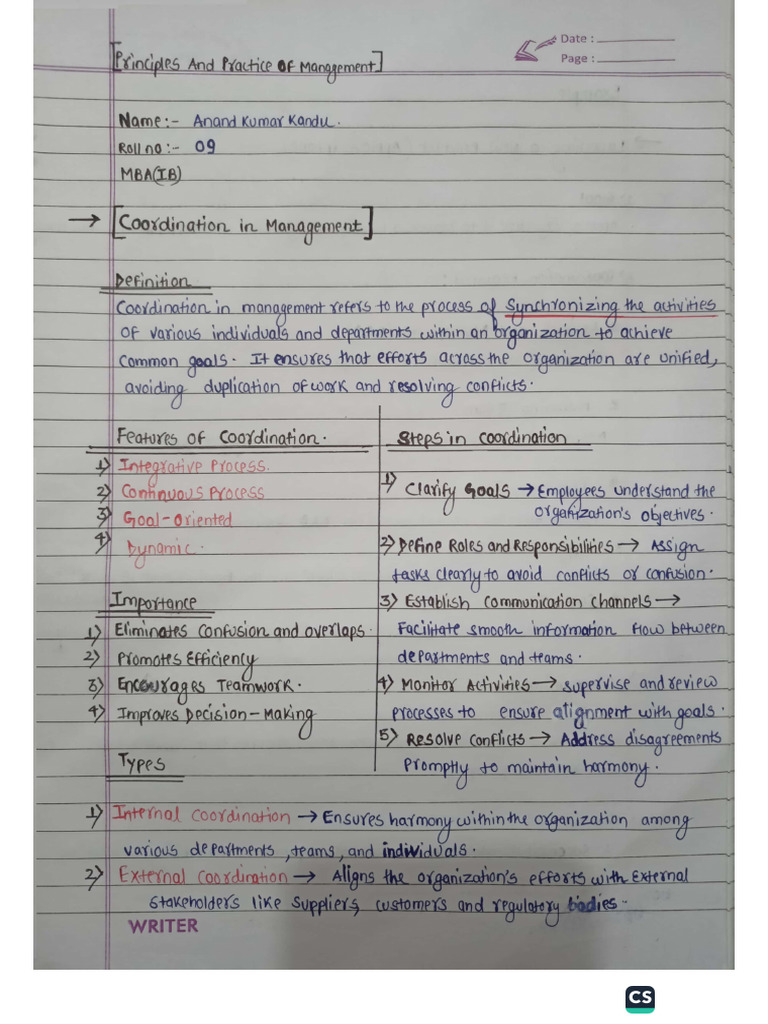 Date :
Page :
[Principles And Practice OF Management]
Name:- Anand Kumar Kandu.
Roll no:- 09
MBA(IB)
→ [Coordination in Management]
Definition
Coordination in management refers to the process of Synchronizing the activities
of various individuals and departments within an organization to achieve
common goals. It ensures that efforts across the organization are unified,
avoiding duplication of work and resolving conflicts.
Features of Coordination.
1) Integrative Process.
2) Continuous Process
3) Goal-Oriented
4) Dynamic.
Importance
1) Eliminates Confusion and overlaps.
2) Promotes Efficiency
3) Encourages Teamwork.
4) Improves Decision-Making
Types
Steps in coordination
1) Clarify Goals → Employees understand the
organization's objectives.
2) Define Roles and Responsibilities → Assign
tasks clearly to avoid conflicts or confusion.
3) Establish communication channels →
Facilitate smooth information flow between
departments and teams.
4) Monitor Activities → supervise and review
processes to ensure alignment with goals.
5) Resolve conflicts → Address disagreements
promptly to maintain harmony.
1) Internal coordination → Ensures harmony within the organization among
various departments, teams, and individuals.
2) External coordination → Aligns the organization's efforts with External
stakeholders like suppliers, customers and regulatory bodies.
WRITER
CS